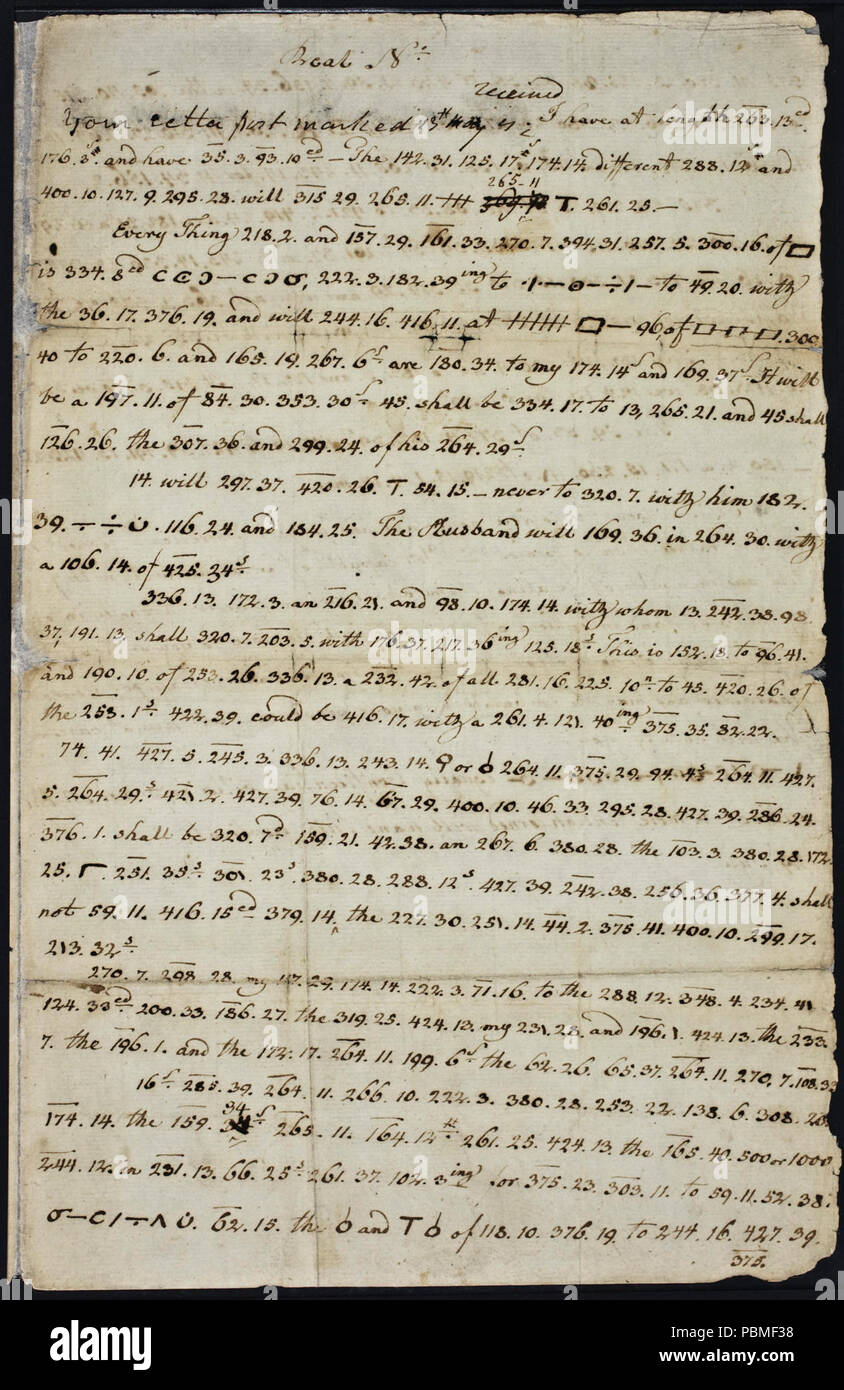 Real Nos.
received
Your letter post marked 13th May is I have at length 263. 13ed.
176. 3s. and have 35. 3. 93. 10ed — The 142. 31. 125. 17s. 174. 14. different 288. 12s and
265. 11
400. 10. 127. 9. 295. 28. will 315 29. 265. 11. T. 261. 25. —
Every Thing 218. 2. and 157. 29. 161. 33. 270. 7. 394. 31. 257. 5. 300. 16. of □
is 334. 8ed 222. 3. 182. 39ing to to 49. 20. with
the 36. 17. 376. 19. and will 244. 16. 416. 11. at □ — 96, of □ □ □ □. 300
40 to 220. 6. and 165. 19. 267. 6s. are 180. 34. to my 174. 14s and 169. 37s. It will
be a 197. 11. of 84. 30. 353. 30s. 45. shall be 334. 17. to 13, 265. 21. and 45 shall
126. 26. the 307. 36. and 299. 24. of his 264. 29s.
14. will 297. 37. 420. 26. T. 54. 15. — never to 320. 7. with him 182.
39. 116. 24. and 184. 25. The Husband will 169. 36. in 264. 30. with
a 106. 14. of 425. 34s.
336. 13. 172. 3. an 216. 21. and 98. 10. 174. 14. with whom 13. 242. 38. 98
37, 191. 13. shall 320. 7. 203. 5. with 176. 37. 217. 36ing 125. 18s. This is 152. 18. to 96. 41.
and 190. 10. of 253. 26. 336. 13. a 232. 42. of all 281. 16. 225. 10n. to 45. 420. 26. of
the 258. 1s. 422. 39. could be 416. 17. with a 261. 4. 121. 40ing 375. 35. 82. 22.
74. 41. 427. 5. 245. 3. 336. 13. 243. 14. or 264. 11. 375. 29. 94. 4s. 264. 11. 427.
5. 264. 29s. 421. 2. 427. 39. 76. 14. 67. 29. 400. 10. 46. 33. 295. 28. 427. 39. 286. 24.
376. 1. shall be 320. 7d. 159. 21. 42. 38. an 267. 6. 380. 28. the 103. 3. 380. 28. 172.
25. Γ. 251. 35s. 301. 23s. 380. 28. 288. 12s. 427. 39. 242. 38. 256. 36. 377. 4. shall
not 59. 11. 416. 15ed 379. 14. the 227. 30. 251. 14. 44. 2. 375. 41. 400. 10. 299. 17.
213. 32s.
270. 7. 298. 28. my 117. 29. 174. 14. 222. 3. 71. 16. to the 288. 12. 348. 4. 234. 41
124. 33ed 200. 33. 186. 27. the 319. 25. 424. 13. my 231. 28. and 196. 1. 424. 13. the 233.
7. the 196. 1. and the 172. 17. 264. 11. 199. 6s. the 62. 26. 65. 37. 264. 11. 270. 7. 108. 33
16s. 285. 39. 264. 11. 266. 10. 222. 3. 380. 28. 253. 22. 138. 6. 308. 20.
34
174. 14. the 159. 265. 11. 164. 12th. 261. 25. 424. 13. the 165. 40. 500 or 1000
244. 12. in 231. 13. 66. 25s. 261. 37. 102. 3ing for 375. 23. 303. 11. to 59. 11. 52. 38.
62. 15. the and T of 118. 10. 376. 19. to 244. 16. 427. 39.
375.
alamy
www.alamy.com
Image ID: PBMF38